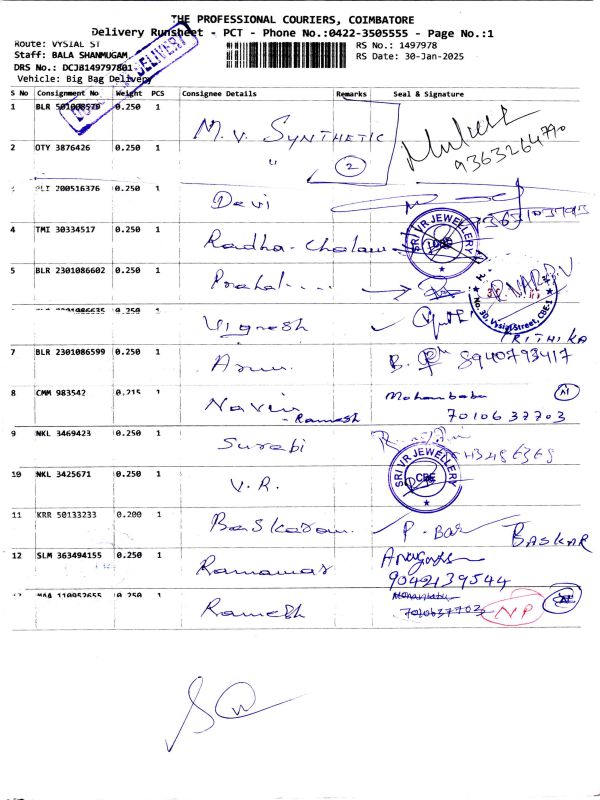 THE PROFESSIONAL COURIERS, COIMBATORE
Delivery Runsheet - PCT - Phone No.:0422-3505555 - Page No.:1
Route: VYSIAL ST
RS No.: 1497978
Staff: BALA SHANMUGAM
RS Date: 30-Jan-2025
DRS No.: DCJB149797801
Vehicle: Big Bag Delivery
DELIVERY
S No Consignment No Weight PCS Consignee Details Remarks Seal & Signature
1 BLR 501008570 0.250 1 M.V. SYNTHETIC
2 OTY 3876426 0.250 1 " 2 9363264790
200516376 0.250 1 Devi
4 TMI 30334517 0.250 1 Radha- SRI VR JEWELLERY CBE
5 BLR 2301086602 0.250 1 No. 30, Vysial Street, CBE-1
0.250 1 Vignesh KRITHIKA
7 BLR 2301086599 0.250 1 Arun B. 8940793417
8 CMM 983542 0.215 1 Navin - Ramesh Mohanbabu 7010637703
9 NKL 3469423 0.250 1 Surabi
10 NKL 3425671 0.250 1 V.R. SRI VR JEWELLERY CBE
11 KRR 50133233 0.200 1 Baskaran P. Bas BASKAR
12 SLM 363494155 0.250 1 9042139544
MAA 110952655 0.250 1 Ramesh 7010637703 NP